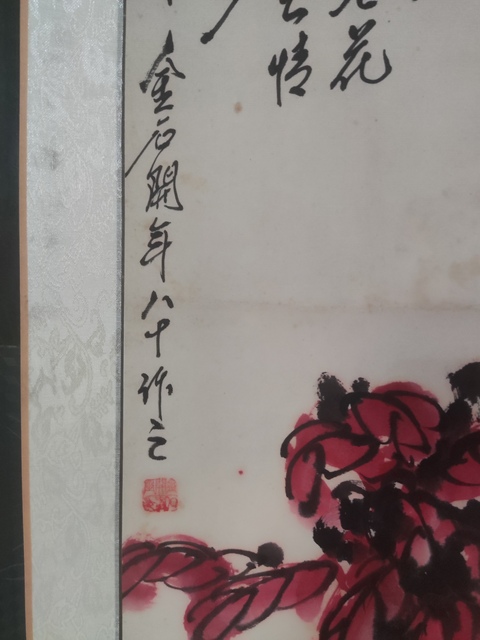 花
情
金石開年八十作之